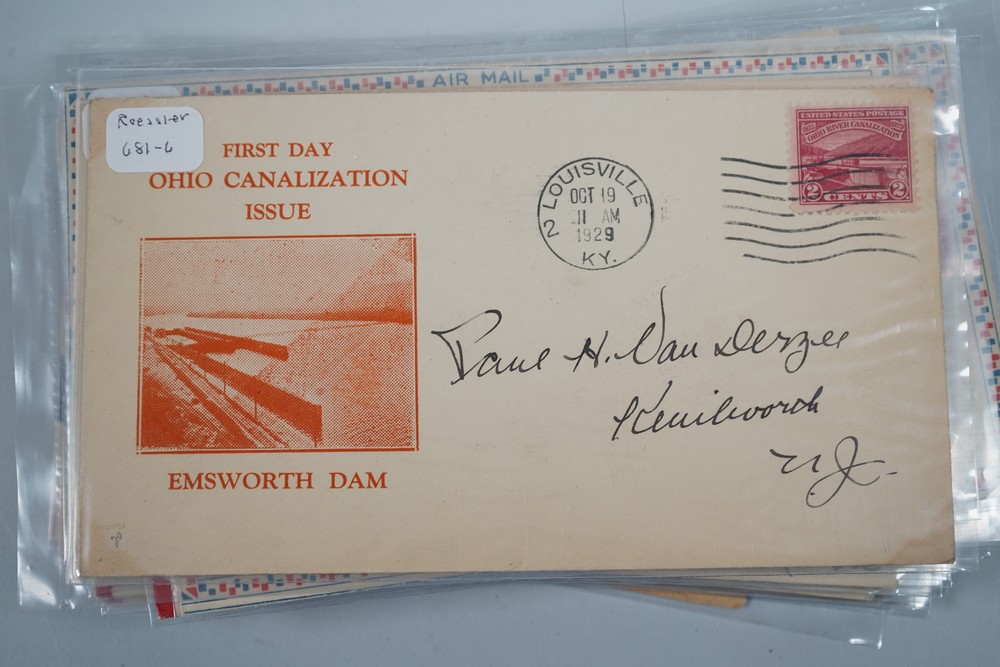 AIR MAIL
Roessler
681-6
FIRST DAY
OHIO CANALIZATION
ISSUE
EMSWORTH DAM
LOUISVILLE
2
OCT 19
11 AM
1929
KY.
UNITED STATES POSTAGE
OHIO RIVER CANALIZATION
2 CENTS 2
Paul H. Van Derzee
Kenilworth
N J.